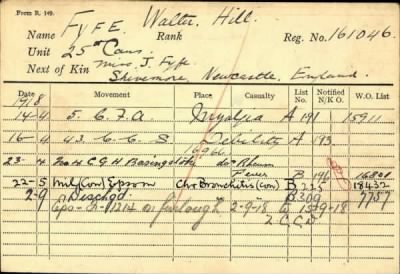 Form R. 149.
Name FYFE. Walter. Hill.
Rank Reg. No. 161046.
Unit 25th Cans.
Next of Kin Miss J. Fyfe
Newcastle, England.
Date Movement Place Casualty List No. Notified N/K O. W.O. List
1918
14-4 5. C.F.A. Myalgia A 191 15911
16-4 43. C. C. S Debility A 193
23-4 No 4 C.G.H Basingstoke do Rheum
Fever B 196 16801
22-5 Mil (Con) Epsom Chr Bronchitis (Con) B 225 18432
2-9 Dischgd B 309 7757
on furlough 2-9-18 13-9-18